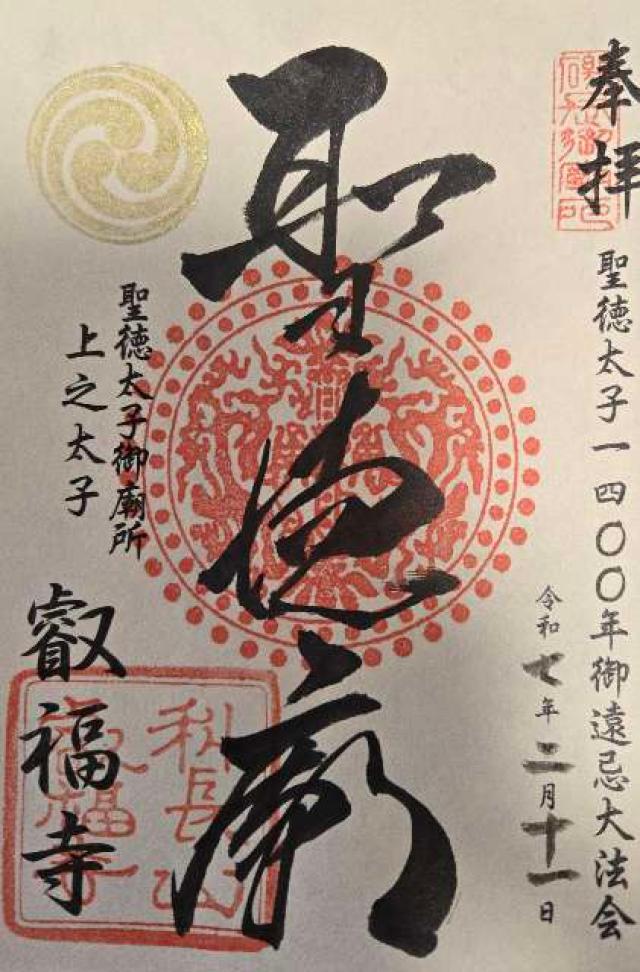 奉拝
聖徳太子一四〇〇年御遠忌大法会
令和七年二月十一日
聖徳廟
聖徳太子御廟所
上之太子
叡福寺
科長山
叡福寺